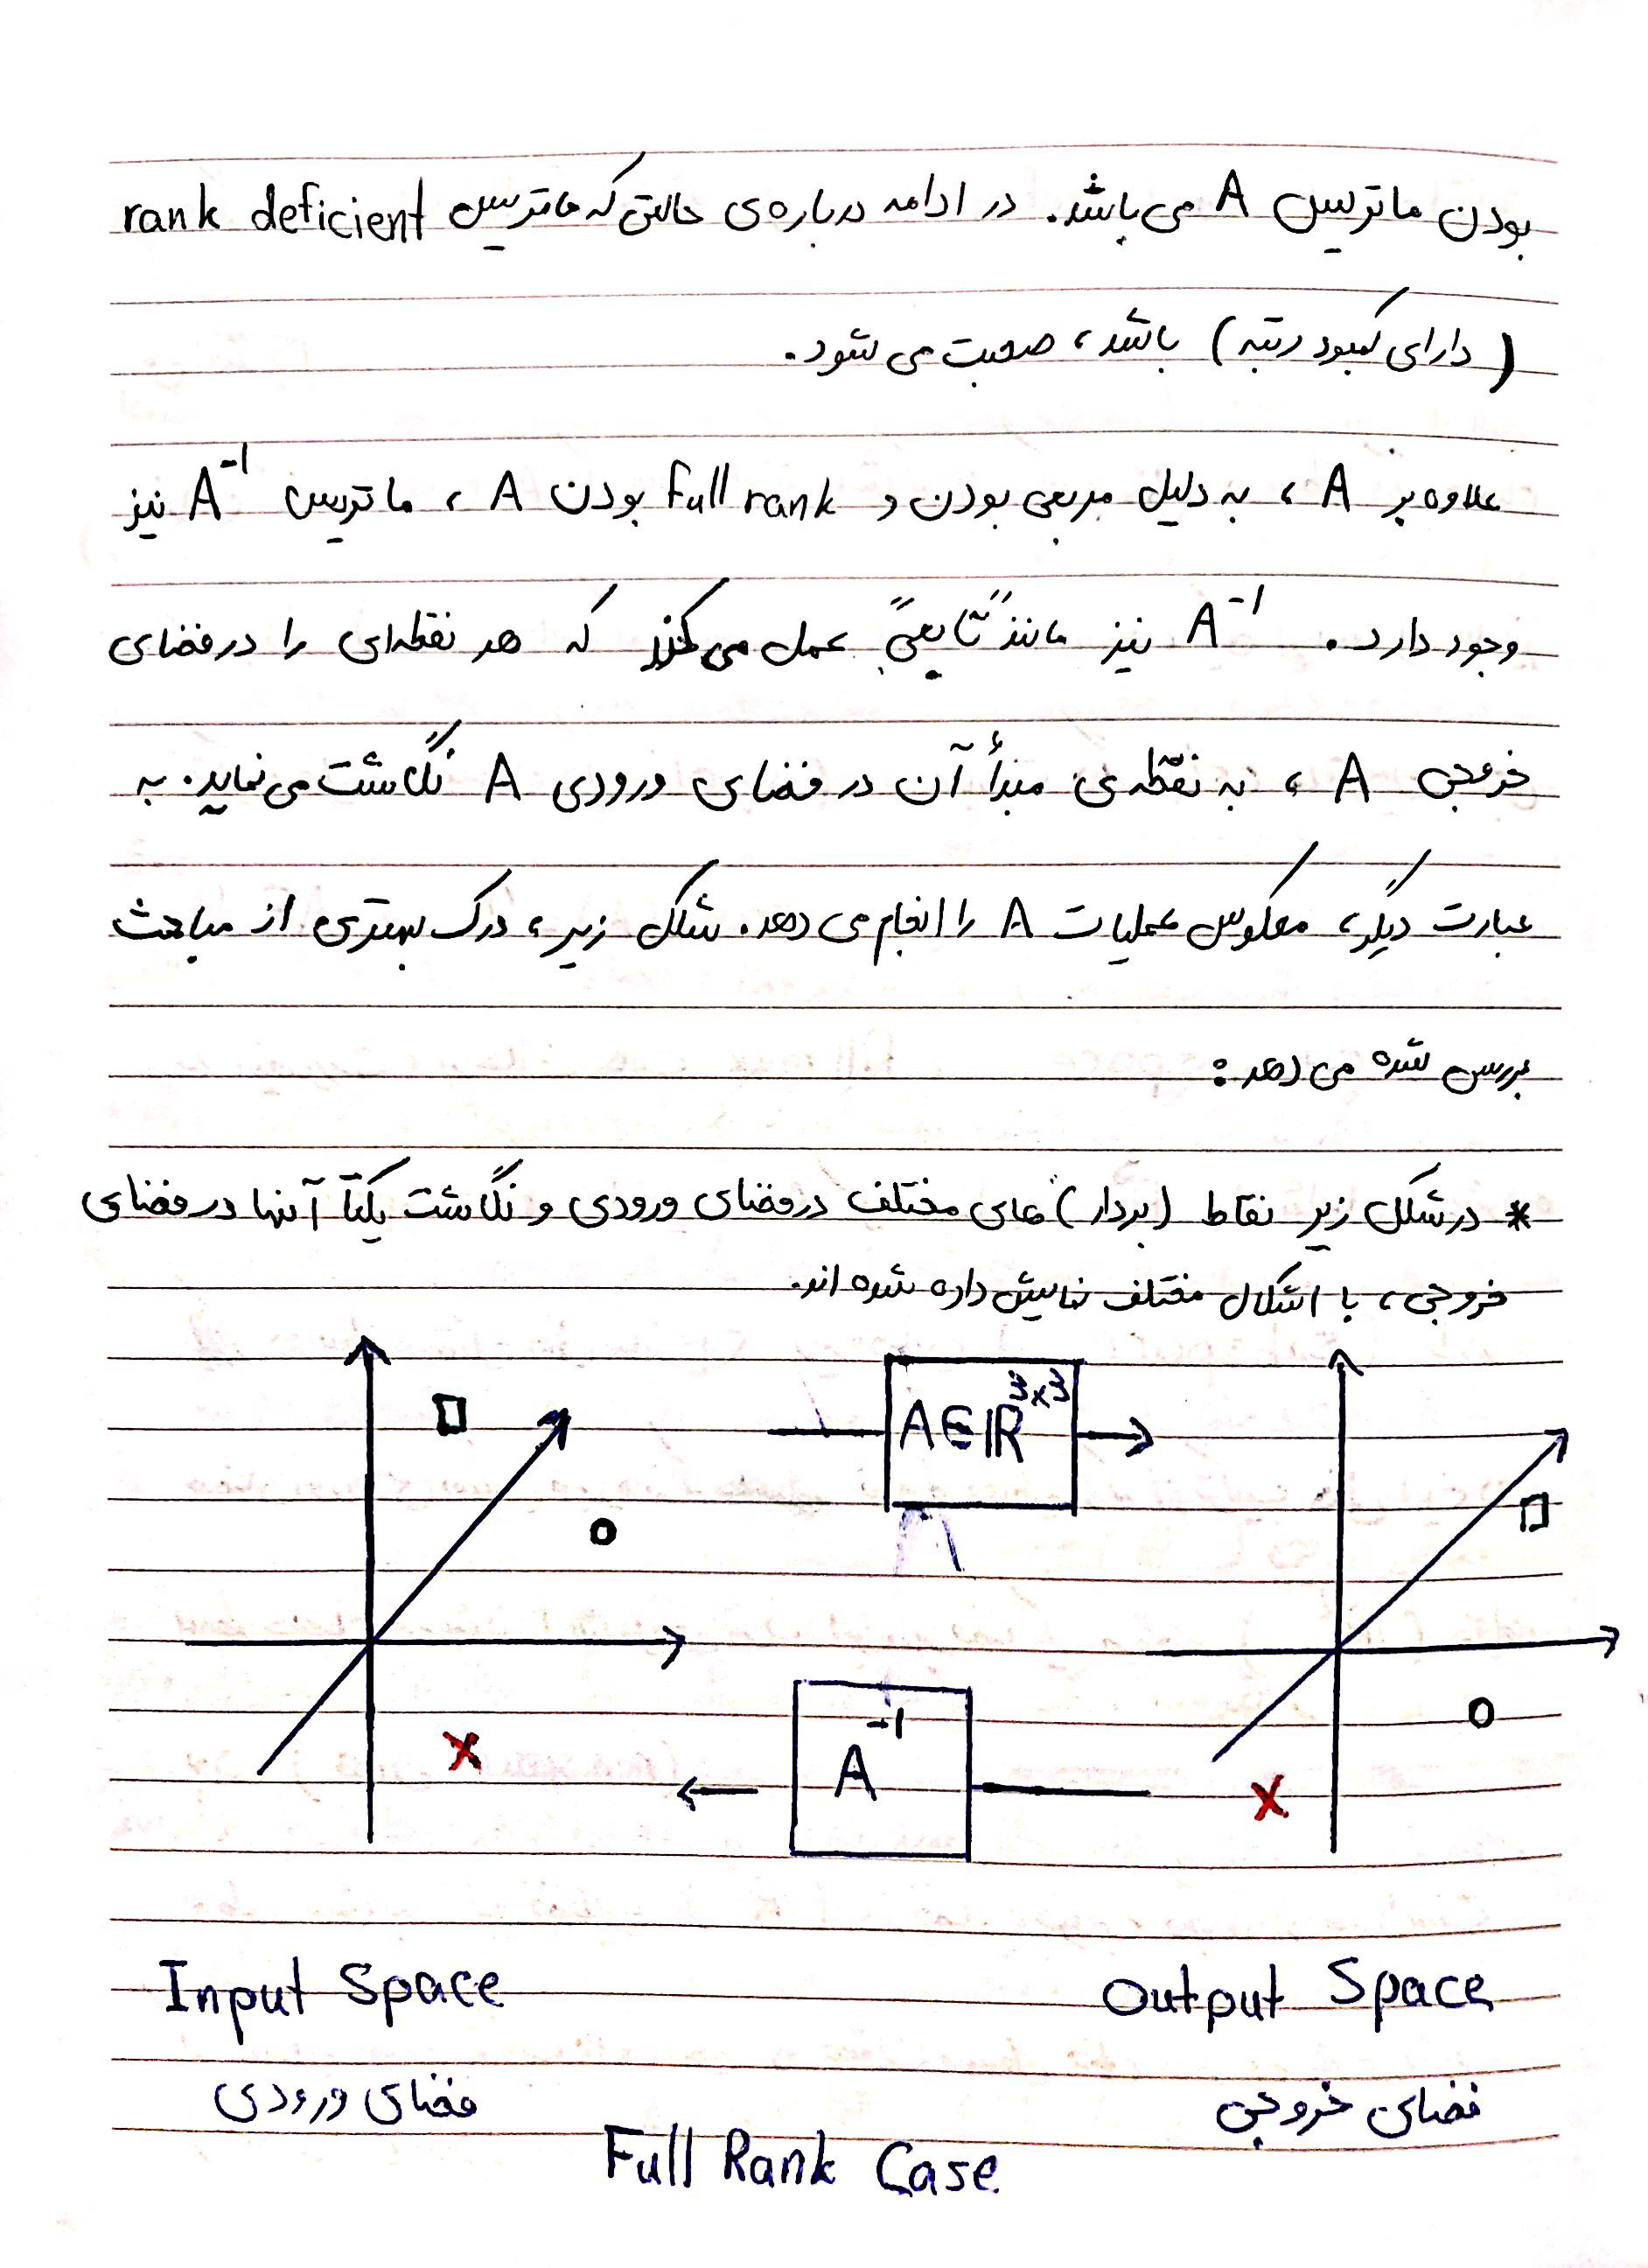 بودن ماتریس A می‌باشد. در ادامه درباره‌ی حالتی که ماتریس rank deficient
(دارای کمبود رتبه) باشد، صحبت می شود.
علاوه بر A ، به دلیل مربعی بودن و Full rank بودن A ، ماتریس A⁻¹ نیز
وجود دارد. A⁻¹ نیز مانند "تابعی" عمل می‌کند که هر نقطه‌ای را در فضای
خروجی A ، به نقطه‌ی مبدأ آن در فضای ورودی A نگاشت می نماید. به
عبارت دیگر، معکوس عملیات A را انجام می دهد. شکل زیر، درک بهتری از مباحث
بررسی شده می دهد:
* در شکل زیر نقاط (بردار) های مختلف در فضای ورودی و نگاشت یکتا آنها در فضای
خروجی، با اشکال مختلف نمایش داده شده اند.
A∈ℝ³ˣ³
A⁻¹
Input Space
Output Space
فضای ورودی
فضای خروجی
Full Rank Case